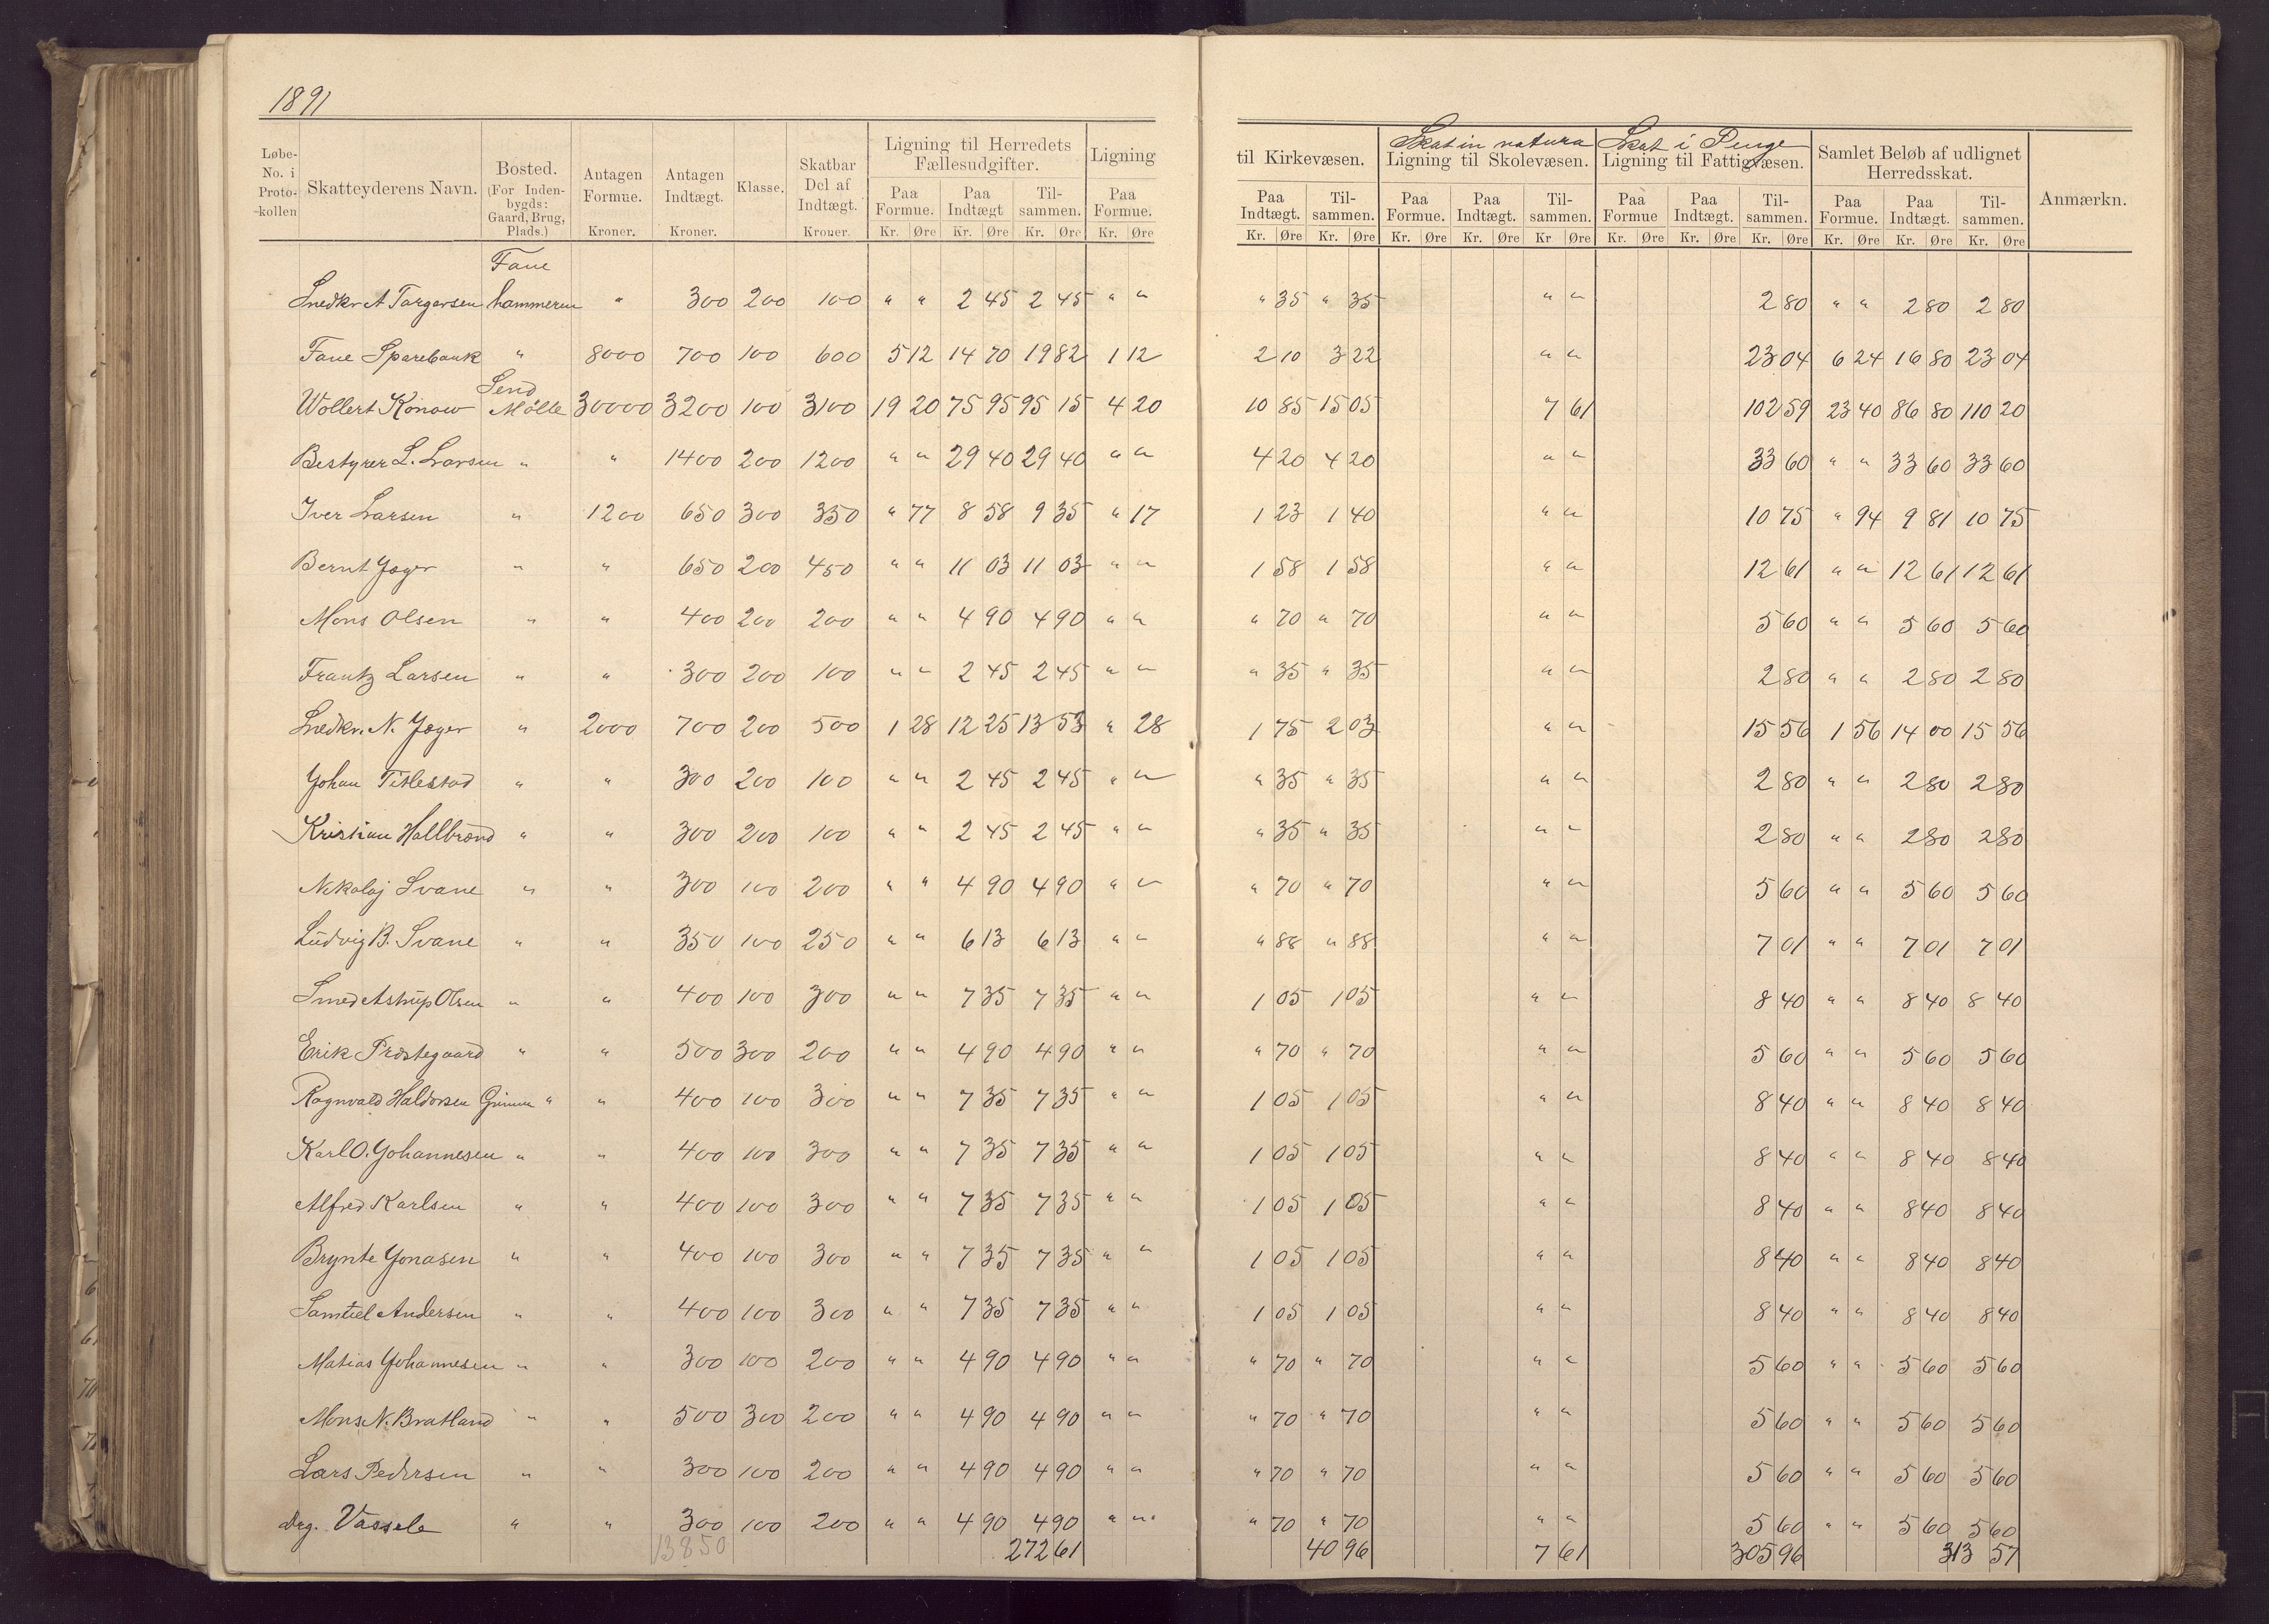 1891
Løbe-No. i Proto-kollen | Skatteyderens Navn. | Bosted. (For Inden-bygds: Gaard, Brug, Plads.) | Antagen Formue. Kroner. | Antagen Indtægt. Kroner. | Klasse. | Skatbar Del af Indtægt. Kroner. | Ligning til Herredets Fællesudgifter. Paa Formue. Kr. Øre Paa Indtægt Kr. Øre Til-sammen. Kr. Øre | Ligning Paa Formue. Kr. Øre | til Kirkevæsen. Paa Indtægt. Kr. Øre Til-sammen. Kr. Øre | Skat in natura Ligning til Skolevæsen. Paa Formue. Kr. Øre Paa Indtægt. Kr. Øre Til-sammen. Kr Øre | Skat i Penge Ligning til Fattigvæsen. Paa Formue Kr. Øre Paa Indtægt. Kr. Øre Til-sammen. Kr. Øre | Samlet Beløb af udlignet Herredsskat. Paa Formue. Kr. Øre Paa Indtægt. Kr. Øre Til-sammen. Kr. Øre | Anmærkn.
Fane
Snedkr A Torgersen hammeren " 300 200 100 " " 2 45 2 45 " " " 35 " 35 " " 2 80 " " 2 80 2 80
Fane Sparebank " 8000 700 100 600 5 12 14 70 19 82 1 12 2 10 3 22 " " 23 04 6 24 16 80 23 04
Send
Wollert Konow Mölle 30000 3200 100 3100 19 20 75 95 95 15 4 20 10 85 15 05 7 61 102 59 23 40 86 80 110 20
Bestyrer L. Larsen " " 1400 200 1200 " " 29 40 29 40 " " 4 20 4 20 " " 33 60 " " 33 60 33 60
Iver Larsen " 1200 650 300 350 " 77 8 58 9 35 " 17 1 23 1 40 " " 10 75 " 94 9 81 10 75
Bernt Jæger " " 650 200 450 " " 11 03 11 03 " " 1 58 1 58 " " 12 61 " " 12 61 12 61
Mons Olsen " " 400 200 200 " " 4 90 4 90 " " " 70 " 70 " " 5 60 " " 5 60 5 60
Frantz Larsen " " 300 200 100 " " 2 45 2 45 " " " 35 " 35 " " 2 80 " " 2 80 2 80
Snedkr. N. Jæger " 2000 700 200 500 1 28 12 25 13 53 " 28 1 75 2 03 " " 15 56 1 56 14 00 15 56
Johan Titlestad " " 300 200 100 " " 2 45 2 45 " " " 35 " 35 " " 2 80 " " 2 80 2 80
Kristian Hallbrand " " 300 200 100 " " 2 45 2 45 " " " 35 " 35 " " 2 80 " " 2 80 2 80
Nikolaj Svane " " 300 100 200 " " 4 90 4 90 " " " 70 " 70 " " 5 60 " " 5 60 5 60
Ludvig B. Svane " " 350 100 250 " " 6 13 6 13 " " " 88 " 88 " " 7 01 " " 7 01 7 01
Smed Astrup Olsen " " 400 100 300 " " 7 35 7 35 " " 1 05 1 05 " " 8 40 " " 8 40 8 40
Erik Præstegaard " " 500 300 200 " " 4 90 4 90 " " " 70 " 70 " " 5 60 " " 5 60 5 60
Ragnvald Haldorsen Grimm " " 400 100 300 " " 7 35 7 35 " " 1 05 1 05 " " 8 40 " " 8 40 8 40
Karl O. Johannesen " " 400 100 300 " " 7 35 7 35 " " 1 05 1 05 " " 8 40 " " 8 40 8 40
Alfred Karlsen " " 400 100 300 " " 7 35 7 35 " " 1 05 1 05 " " 8 40 " " 8 40 8 40
Brynte Jonasen " " 400 100 300 " " 7 35 7 35 " " 1 05 1 05 " " 8 40 " " 8 40 8 40
Samuel Andersen " " 400 100 300 " " 7 35 7 35 " " 1 05 1 05 " " 8 40 " " 8 40 8 40
Matias Johannesen " " 300 100 200 " " 4 90 4 90 " " " 70 " 70 " " 5 60 " " 5 60 5 60
Mons N. Bratland " " 500 300 200 " " 4 90 4 90 " " " 70 " 70 " " 5 60 " " 5 60 5 60
Lars Pedersen " " 300 100 200 " " 4 90 4 90 " " " 70 " 70 " " 5 60 " " 5 60 5 60
Drg. Vassele " " 300 100 200 " " 4 90 4 90 " " " 70 " 70 " " 5 60 " " 5 60 5 60
13850 272 61 40 96 7 61 305 96 313 57